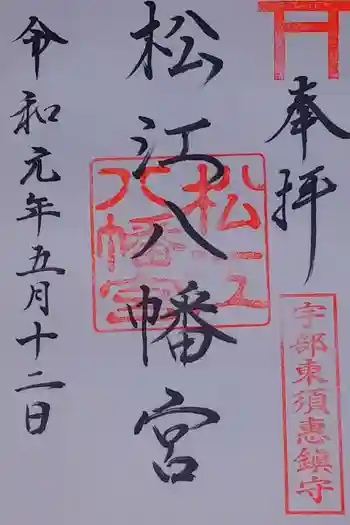 奉拝
宇部東須恵鎮守
松江八幡宮
松江八幡宮
令和元年五月十二日